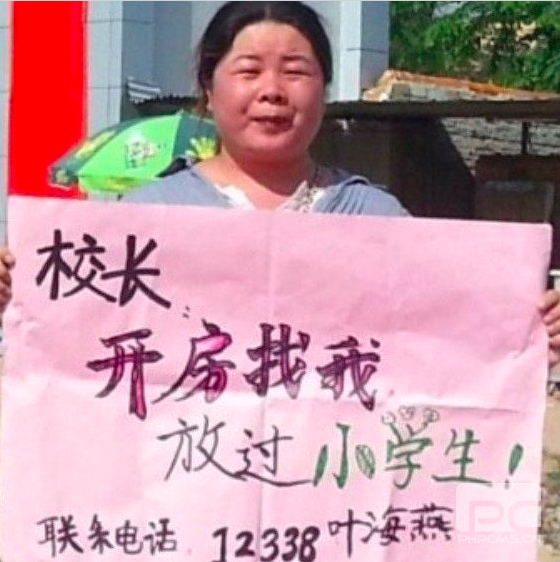 校长
开房找我
放过小学生!
联系电话 12338 叶海燕
PHPCMS.CN